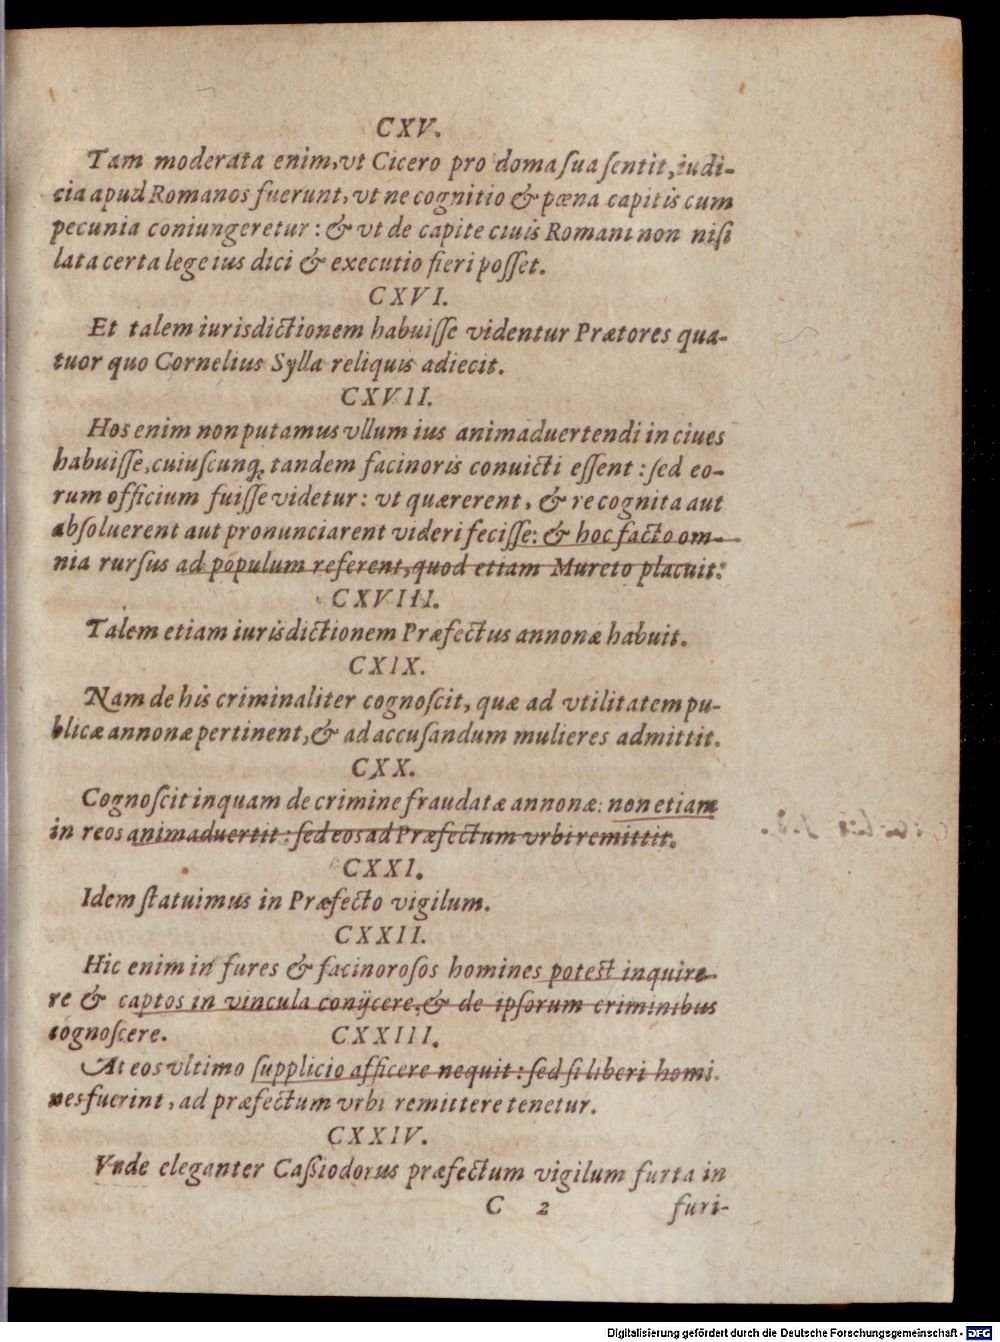 CXV.
Tam moderata enim, vt Cicero pro doma sua sentit, iudi-
cia apud Romanos fuerunt, vt ne cognitio & pœna capitis cum
pecunia coniungeretur: & vt de capite ciuis Romani non nisi
lata certa lege ius dici & executio fieri posset.
CXVI.
Et talem iurisdictionem habuisse videntur Prætores qua-
tuor quo Cornelius Sylla reliquis adiecit.
CXVII.
Hos enim non putamus vllum ius animaduertendi in ciues
habuisse, cuiuscunq; tandem facinoris conuicti essent: sed eo-
rum officium fuisse videtur: vt quærerent, & re cognita aut
absoluerent aut pronunciarent videri fecisse: & hoc facto om-
nia rursus ad populum referent, quod etiam Mureto placuit.
CXVIII.
Talem etiam iurisdictionem Præfectus annonæ habuit.
CXIX.
Nam de his criminaliter cognoscit, quæ ad vtilitatem pu-
blicæ annonæ pertinent, & ad accusandum mulieres admittit.
CXX.
Cognoscit inquam de crimine fraudatæ annonæ: non etiam
in reos animaduertit: sed eos ad Præfectum vrbi remittit.
CXXI.
Idem statuimus in Præfecto vigilum.
CXXII.
Hic enim in fures & facinorosos homines potest inquire-
re & captos in vincula conijcere, & de ipsorum criminibus
cognoscere.
CXXIII.
At eos vltimo supplicio afficere nequit: sed si liberi homi
nes fuerint, ad præfectum vrbi remittere tenetur.
CXXIV.
Vnde eleganter Cassiodorus præfectum vigilum furta in
C 2 furi-
Digitalisierung gefördert durch die Deutsche Forschungsgemeinschaft - DFG